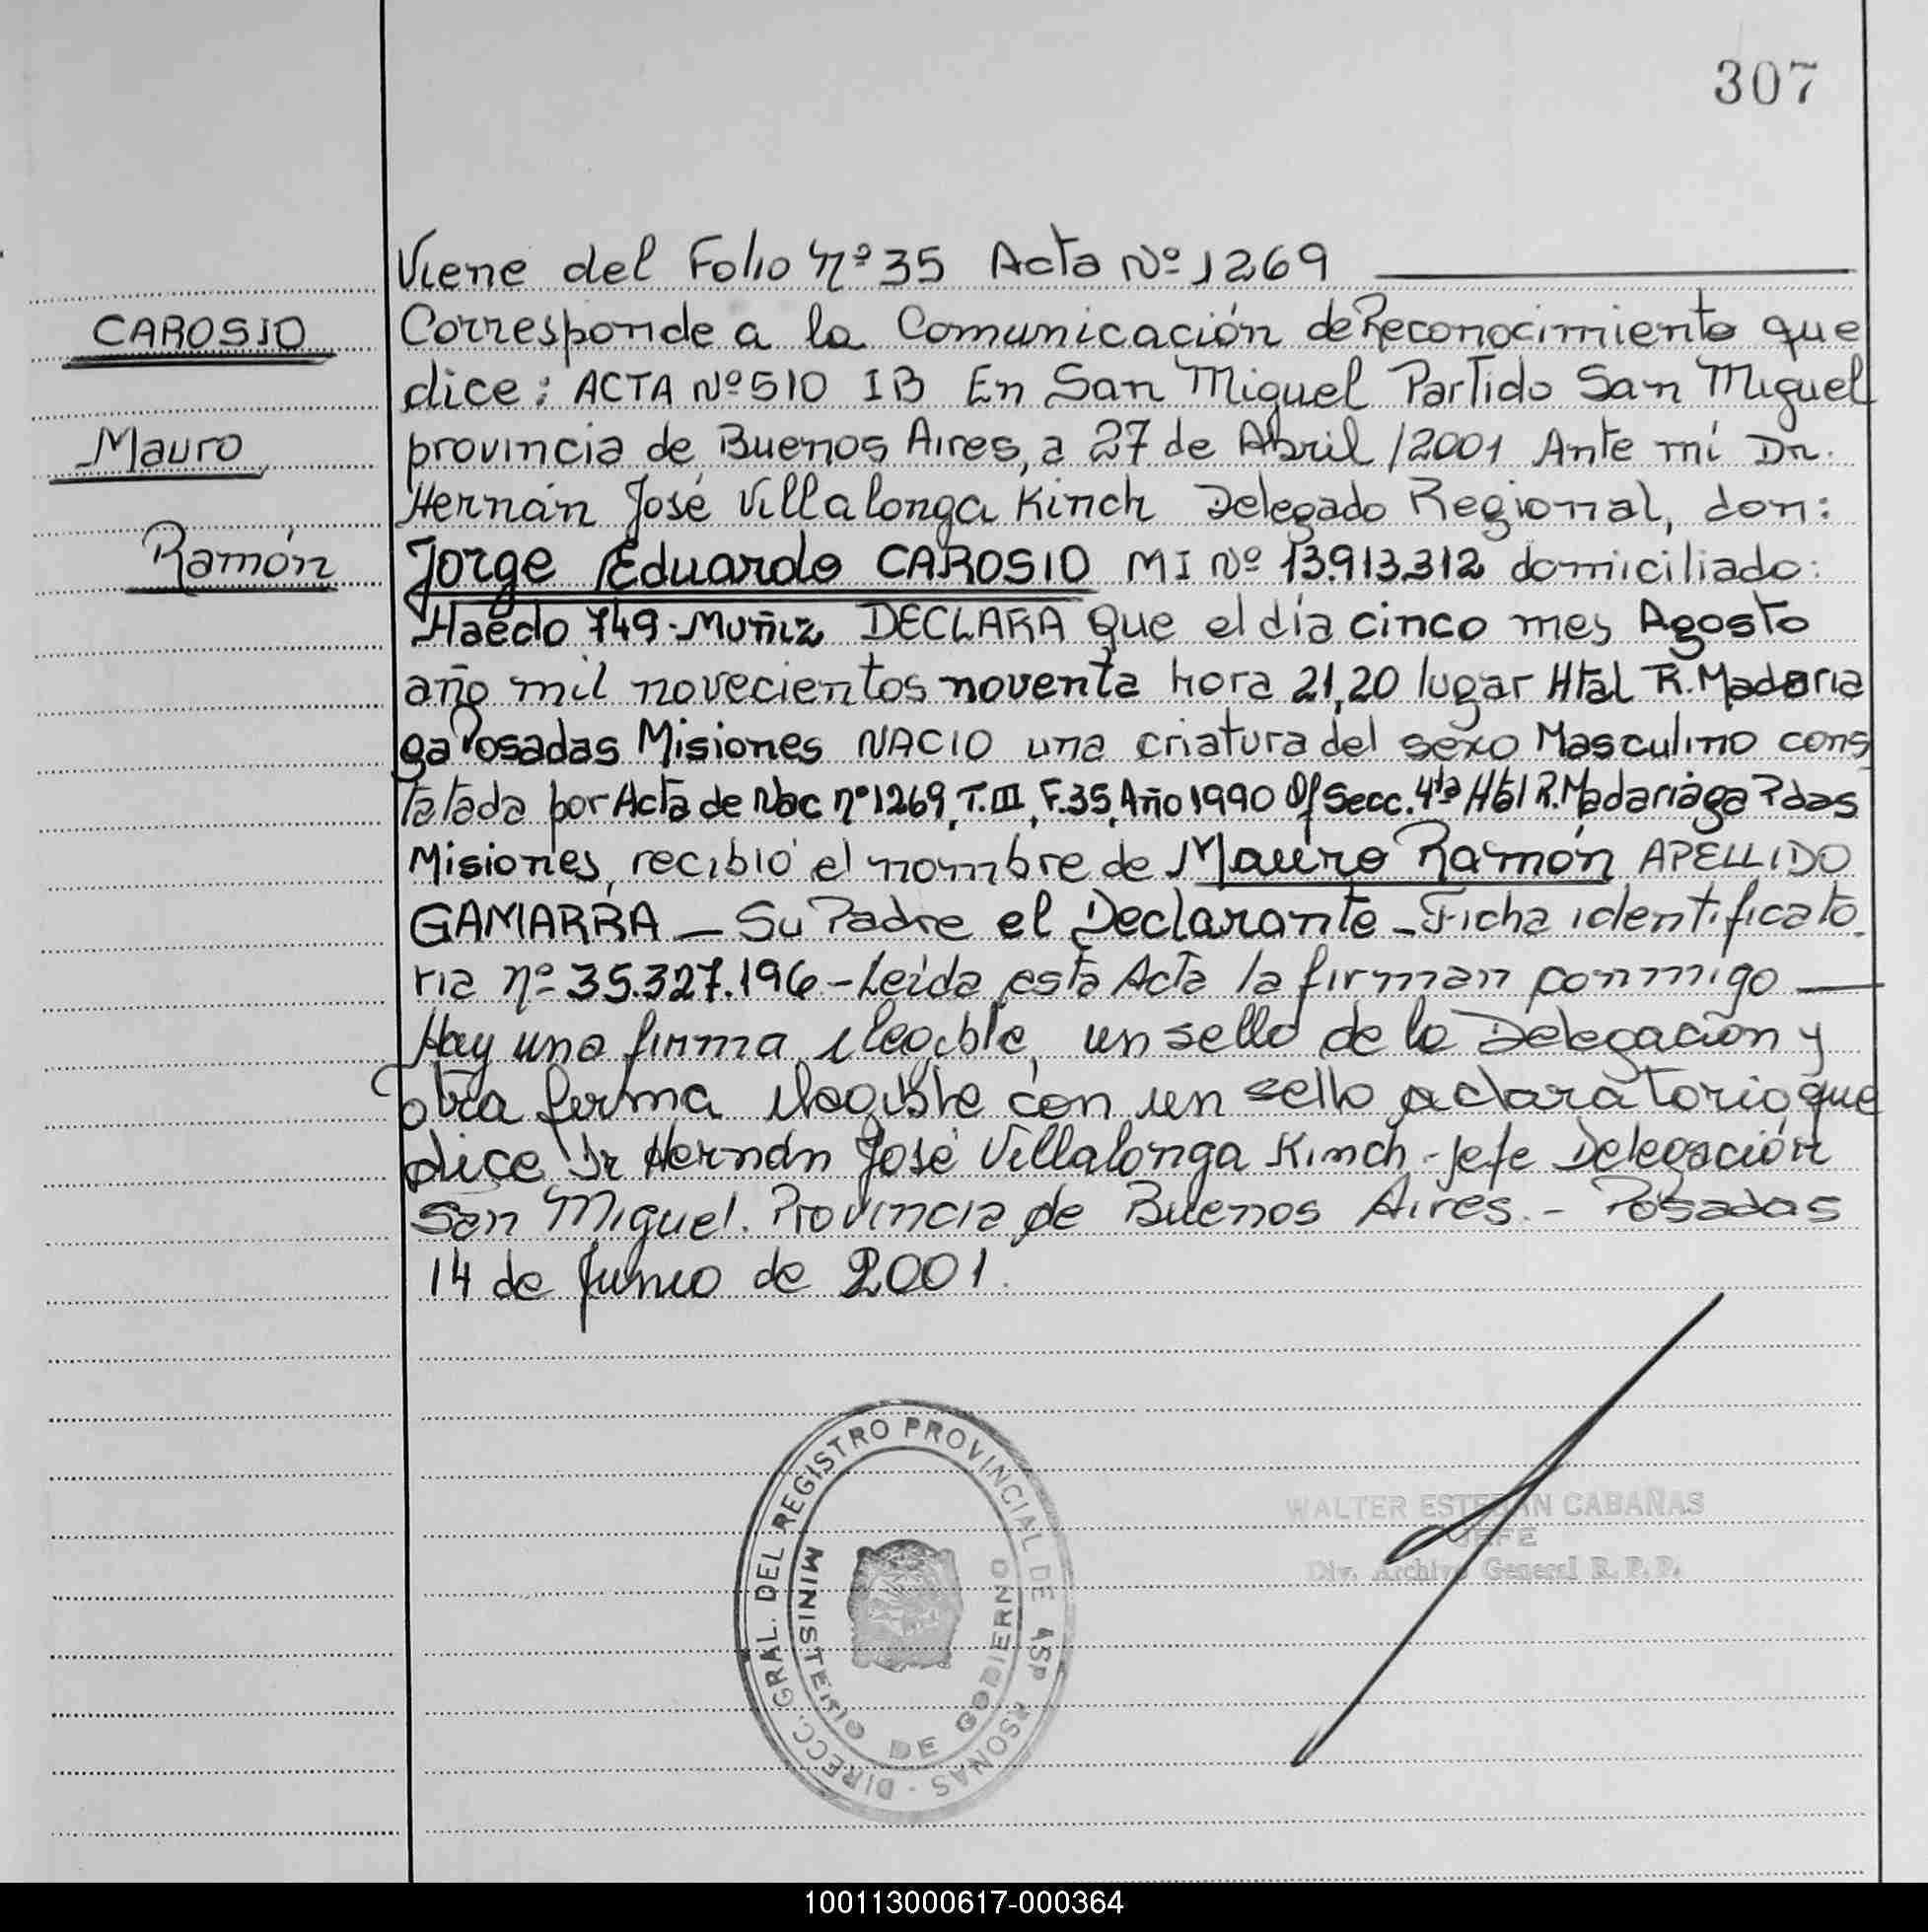 307
Viene del Folio Nº 35 Acta Nº 1269
CAROSIO
Corresponde a la Comunicación de Reconocimiento que
dice: ACTA Nº 510 IB En San Miguel Partido San Miguel
Mauro
provincia de Buenos Aires, a 27 de Abril /2001 Ante mí Dr.
Hernán José Villalonga Kinch Delegado Regional, don:
Ramón
Jorge Eduardo CAROSIO MI Nº 13.913.312 domiciliado:
Haedo 749-Muñiz DECLARA Que el día cinco mes Agosto
año mil novecientos noventa hora 21,20 lugar Htal R. Madaria
ga Posadas Misiones NACIO una criatura del sexo Masculino cons
tatada por Acta de Nac nº 1269, T.III, F.35, Año 1990 Of Secc. 4ta Htal R. Madariaga Pdas
Misiones, recibió el nombre de Mauro Ramón APELLIDO
GAMARRA - Su Padre el Declarante - Ficha identificato
ria nº 35.327.196 - Leída esta Acta la firman conmigo
Hay una firma ilegible, un sello de la Delegación y
otra firma ilegible con un sello aclaratorio que
dice Dr Hernán José Villalonga Kinch - Jefe Delegación
San Miguel. Provincia de Buenos Aires. - Posadas
14 de Junio de 2001.
DIRECC. GRAL. DEL REGISTRO PROVINCIAL DE PERSONAS -
MINISTERIO DE GOBIERNO
WALTER ESTEBAN CABAÑAS
JEFE
Div. Archivo General R. P. P.
100113000617-000364